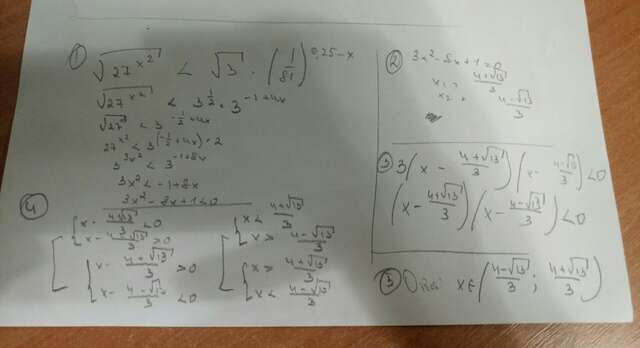 ①
√(27^(x²)) < √3 · (1/81)^(0,25-x)
√(27^(x²)) < 3^(1/2) · 3^(-1+4x)
√(27^(x²)) < 3^(-1/2+4x)
27^(x²) < 3^((-1/2+4x)·2)
3^(3x²) < 3^(-1+8x)
3x² < -1+8x
3x² - 8x + 1 < 0
②
3x² - 8x + 1 = 0
x₁ = (4+√13)/3
x₂ = (4-√13)/3
③
3(x - (4+√13)/3)(x - (4-√13)/3) < 0
(x - (4+√13)/3)(x - (4-√13)/3) < 0
④
[ { x - (4+√13)/3 < 0
x - (4-√13)/3 > 0
{ x - (4+√13)/3 > 0
x - (4-√13)/3 < 0
[ { x < (4+√13)/3
x > (4-√13)/3
{ x > (4+√13)/3
x < (4-√13)/3
③ Ответ x ∈ ((4-√13)/3 ; (4+√13)/3)